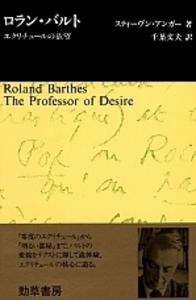 ロラン・バルト
エクリチュールの欲望
スティーヴン・アンガー 著
千葉文夫 訳
Roland Barthes
The Professor of Desire
「零度のエクリチュール」から
「明るい部屋」まで、バルトの
エクリチュールの核心に迫る。
勁草書房